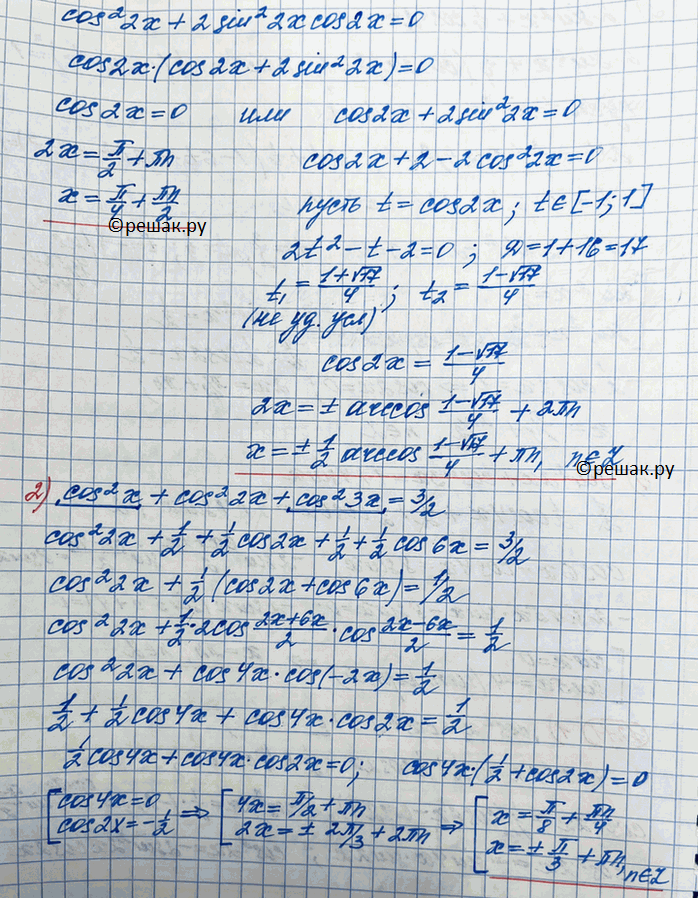 cos²2x + 2 sin²2x cos2x = 0
cos2x·(cos2x + 2 sin²2x) = 0
cos2x = 0 или cos2x + 2 sin²2x = 0
2x = π/2 + πn cos2x + 2 - 2 cos²2x = 0
x = π/4 + πn/2 пусть t = cos2x; t ∈ [-1; 1]
©решак.ру
2t² - t - 2 = 0; Д = 1 + 16 = 17
t₁ = (1+√17)/4; t₂ = (1-√17)/4
(не уд. усл)
cos2x = (1-√17)/4
2x = ± arccos (1-√17)/4 + 2πn
x = ± 1/2 arccos (1-√17)/4 + πn, n∈Z
©решак.ру
2) cos²x + cos²2x + cos²3x = 3/2
cos²2x + 1/2 + 1/2 cos2x + 1/2 + 1/2 cos6x = 3/2
cos²2x + 1/2 (cos2x + cos6x) = 1/2
cos²2x + 1/2·2cos (2x+6x)/2 · cos (2x-6x)/2 = 1/2
cos²2x + cos4x · cos(-2x) = 1/2
1/2 + 1/2 cos4x + cos4x · cos2x = 1/2
1/2 cos4x + cos4x · cos2x = 0; cos4x·(1/2 + cos2x) = 0
[cos4x = 0 ⇒ [4x = π/2 + πn ⇒ [x = π/8 + πn/4
cos2x = -1/2 2x = ± 2π/3 + 2πn x = ± π/3 + πn, n∈Z